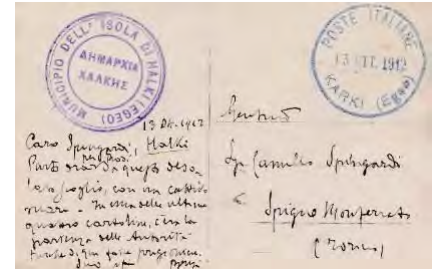 MUNICIPIO DELL' ISOLA DI HALKI (EGEO)
ΔΗΜΑΡΧΙΑ
ΧΑΛΚΗΣ
POSTE ITALIANE
13 OTT. 1912
KARKI (Egeo)
13 Ott. 1912
Caro Spingardi, Halki
Parto ora da questo deso-
lato scoglio, con un cattivo
mare. In una delle ultime
quattro cartoline, c'era la
partenza delle Autorità
Turche di qui
Camillo Spingardi
Spigno Monferrato